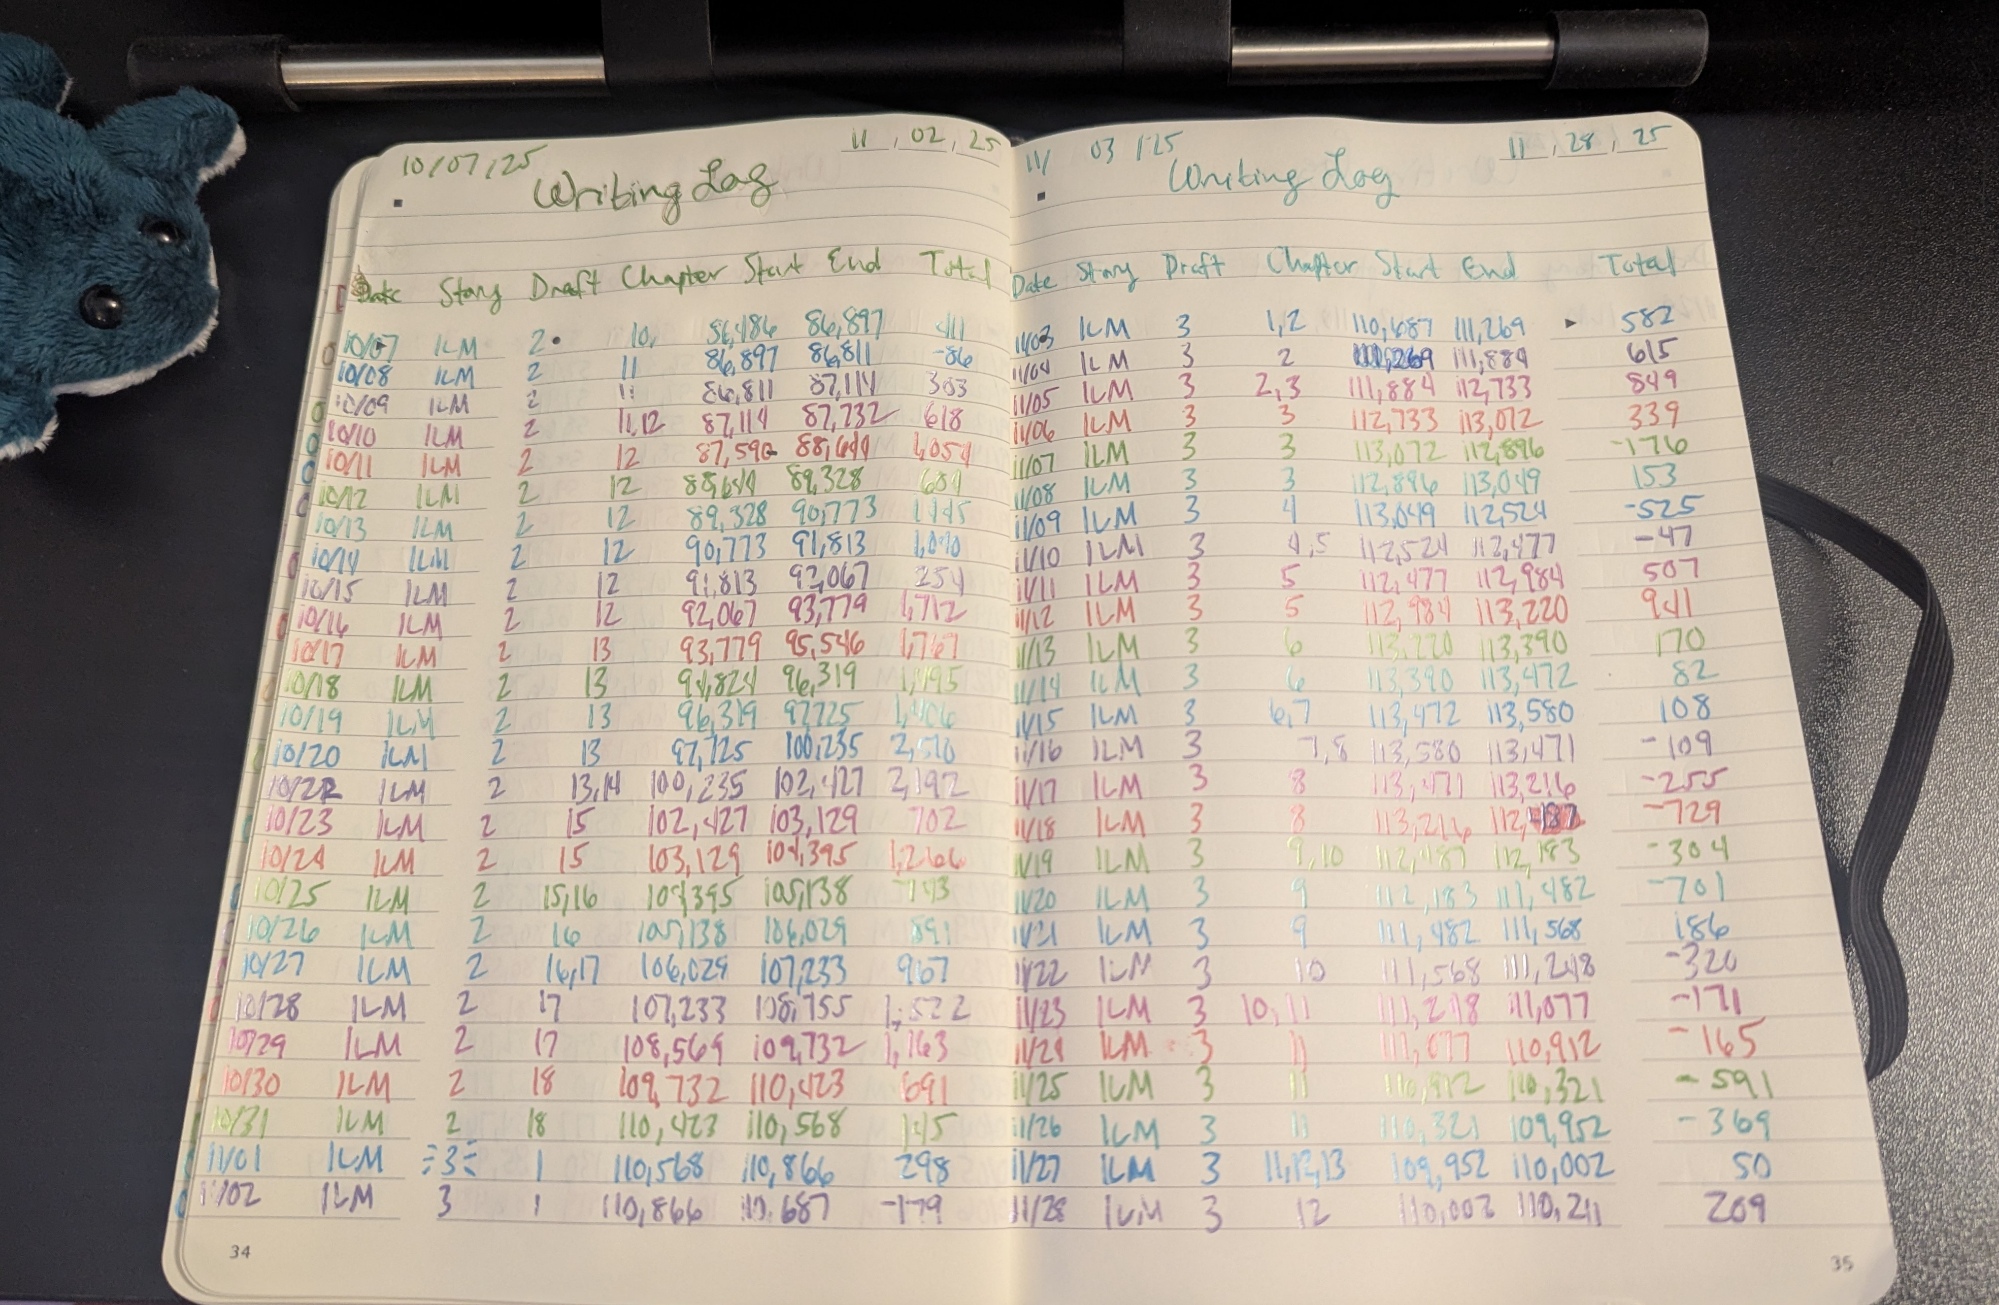 10/07/25 11, 02, 25
Writing Log
Date Story Draft Chapter Start End Total
10/07 ILM 2 10, 86,486 86,897 411
10/08 ILM 2 11 86,897 86,811 -86
10/09 ILM 2 11 86,811 87,114 303
10/10 ILM 2 11,12 87,114 87,732 618
10/11 ILM 2 12 87,590 88,644 1,054
10/12 ILM 2 12 88,644 89,328 684
10/13 ILM 2 12 89,328 90,773 1445
10/14 ILM 2 12 90,773 91,813 1,040
10/15 ILM 2 12 91,813 92,067 254
10/16 ILM 2 12 92,067 93,779 1,712
10/17 ILM 2 13 93,779 95,546 1,767
10/18 ILM 2 13 94,824 96,319 1,495
10/19 ILM 2 13 96,319 97,725 1,406
10/20 ILM 2 13 97,725 100,235 2,510
10/22 ILM 2 13,14 100,235 102,427 2,192
10/23 ILM 2 15 102,427 103,129 702
10/24 ILM 2 15 103,129 104,395 1,266
10/25 ILM 2 15,16 104,395 105,138 743
10/26 ILM 2 16 105,138 106,029 891
10/27 ILM 2 16,17 106,029 107,233 967
10/28 ILM 2 17 107,233 108,755 1,522
10/29 ILM 2 17 108,569 109,732 1,163
10/30 ILM 2 18 109,732 110,423 691
10/31 ILM 2 18 110,423 110,568 145
11/01 ILM 3 1 110,568 110,866 298
11/02 ILM 3 1 110,866 110,687 -179
34
11/ 03 /25 11, 28, 25
Writing Log
Date Story Draft Chapter Start End Total
11/03 ILM 3 1,2 110,687 111,269 582
11/04 ILM 3 2 111,269 111,884 615
11/05 ILM 3 2,3 111,884 112,733 849
11/06 ILM 3 3 112,733 113,072 339
11/07 ILM 3 3 113,072 112,896 -176
11/08 ILM 3 3 112,896 113,049 153
11/09 ILM 3 4 113,049 112,524 -525
11/10 ILM 3 4,5 112,524 112,477 -47
11/11 ILM 3 5 112,477 112,984 507
11/12 ILM 3 5 112,984 113,220 941
11/13 ILM 3 6 113,220 113,390 170
11/14 ILM 3 6 113,390 113,472 82
11/15 ILM 3 6,7 113,472 113,580 108
11/16 ILM 3 7,8 113,580 113,471 -109
11/17 ILM 3 8 113,471 113,216 -255
11/18 ILM 3 8 113,216 112,487 -729
11/19 ILM 3 9,10 112,487 112,183 -304
11/20 ILM 3 9 112,183 111,482 -701
11/21 ILM 3 9 111,482 111,568 186
11/22 ILM 3 10 111,568 111,248 -320
11/23 ILM 3 10,11 111,248 111,077 -171
11/24 ILM 3 11 111,077 110,912 -165
11/25 ILM 3 11 110,912 110,321 -591
11/26 ILM 3 11 110,321 109,952 -369
11/27 ILM 3 11,12,13 109,952 110,002 50
11/28 ILM 3 12 110,002 110,211 209
35